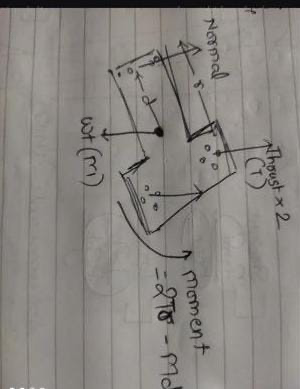 Normal
r
d
Thrust x 2
(T)
wt (m)
moment
= 2Tr - Md